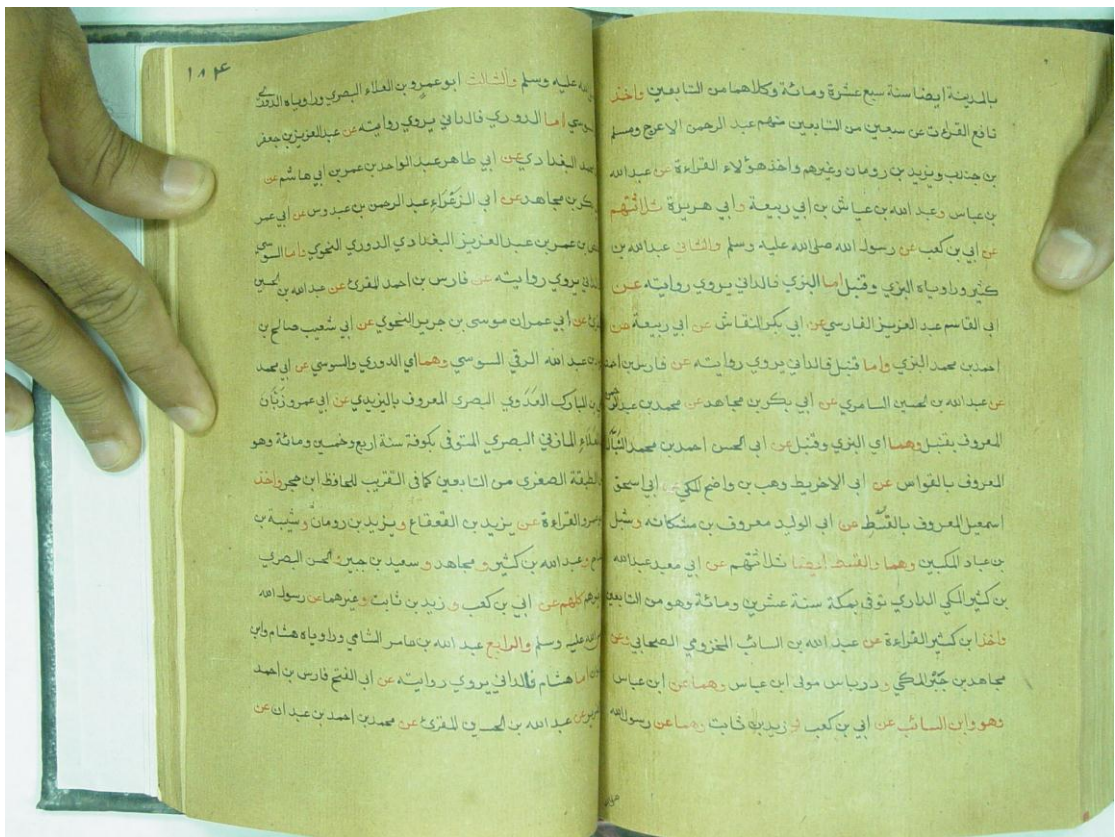 بالمدينة ايضا سنة سبع عشرة ومائة وكلاهما من التابعين واخذ
نافع القراءت عن سبعين من التابعين منهم عبد الرحمن الاعرج ومسلم
بن جندب ويزيد بن رومان وغيرهم واخذ هؤلاء القراءة عن عبد الله
بن عباس وعبد الله بن عياش بن ابي ربيعة وابي هريرة ثلاثتهم
عن ابي بن كعب عن رسول الله صلى الله عليه وسلم والثاني عبد الله بن
كثير وراوياه البزي وقنبل اما البزي فالداني يروي روايته عن
ابي القاسم عبد العزيز الفارسي عن ابي بكر النقاش عن ابي ربيعة عن
احمد بن محمد البزي واما قنبل فالداني يروي روايته عن فارس بن احمد
عن عبد الله بن الحسين السامري عن ابي بكر بن مجاهد عن محمد بن عبد الرحمن
المعروف بقنبل وهما اي البزي وقنبل عن ابي الحسن احمد بن محمد النبال
المعروف بالقواس عن ابي الاخريط وهب بن واضح المكي عن ابي اسحق
اسمعيل المعروف بالقسط عن ابي الوليد معروف بن مشكانه وشبل
بن عباد المكيين وهما والقسط ايضا ثلاثتهم عن ابي معبد عبد الله
بن كثير المكي الداري توفى بمكة سنة عشرين ومائة وهو من التابعين
واخذ ابن كثير القراءة عن عبد الله بن السائب المخزومي الصحابي وعن
مجاهد بن جبر المكي ودرباس مولى ابن عباس وهما عن ابن عباس
وهو وابن السائب عن ابي بن كعب وزيد بن ثابت وهما عن رسول الله
١٨٤
الله عليه وسلم والثالث ابو عمرو بن العلاء البصري وراوياه الدوري
السوسي اما الدوري فالداني يروي روايته عن عبد العزيز بن جعفر
محمد البغدادي عن ابي طاهر عبد الواحد بن عمر بن ابي هاشم عن
بكر بن مجاهد عن ابي الزعراء عبد الرحمن بن عبدوس عن ابي عمر
بن عمر بن عبد العزيز البغدادي الدوري النحوي واما السوسي
يروي روايته عن فارس بن احمد المقرئ عن عبد الله بن الحسين
عن ابي عمران موسى بن جرير النحوي عن ابي شعيب صالح بن
عبد الله الرقي السوسي وهما اي الدوري والسوسي عن ابي محمد
بن المبارك العدوي البصري المعروف باليزيدي عن ابي عمرو زبان
العلاء المازني البصري المتوفى بكوفة سنة اربع وخمسين ومائة وهو
الطبقة الصغرى من التابعين كما في التقريب للحافظ ابن حجر واخذ
القراءة عن يزيد بن القعقاع ويزيد بن رومان وشيبة بن
وعبد الله بن كثير ومجاهد وسعيد بن جبير والحسن البصري
كلهم عن ابي بن كعب وزيد بن ثابت وغيرهما عن رسول الله
الله عليه وسلم والرابع عبد الله بن عامر الشامي وراوياه هشام وابن
اما هشام فالداني يروي روايته عن ابي الفتح فارس بن احمد
عن عبد الله بن الحسين المقرئ عن محمد بن احمد بن عبدان عن